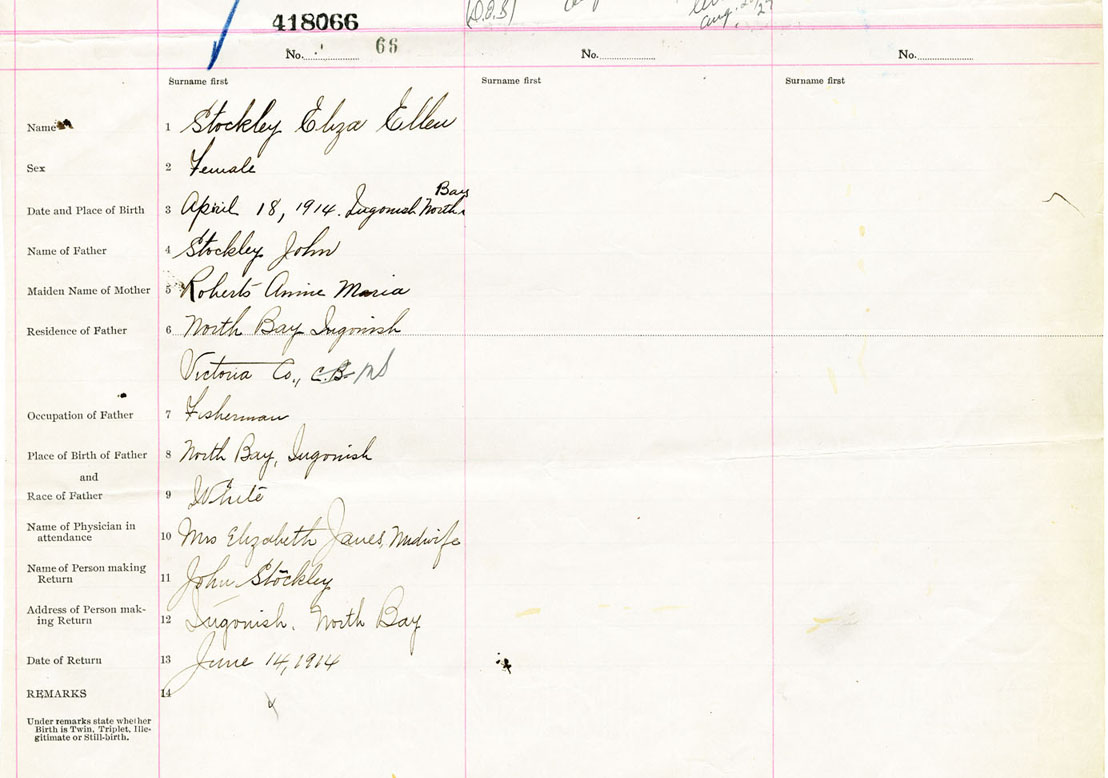 418066
(D.O.B)
Aug.
No. 66
No.
No.
Surname first
Surname first
Surname first
Name 1 Stockley Eliza Ellen
Sex 2 Female
Bay
Date and Place of Birth 3 April 18, 1914. Ingonish North
Name of Father 4 Stockley John
Maiden Name of Mother 5 Roberts Annie Maria
Residence of Father 6 North Bay Ingonish
Victoria Co., C.B. NS
Occupation of Father 7 Fisherman
Place of Birth of Father 8 North Bay, Ingonish
and
Race of Father 9 White
Name of Physician in
attendance 10 Mrs Elizabeth Janes, Midwife
Name of Person making
Return 11 John Stockley
Address of Person mak-
ing Return 12 Ingonish. North Bay
Date of Return 13 June 14, 1914
REMARKS 14
Under remarks state whether
Birth is Twin, Triplet, Ille-
gitimate or Still-birth.